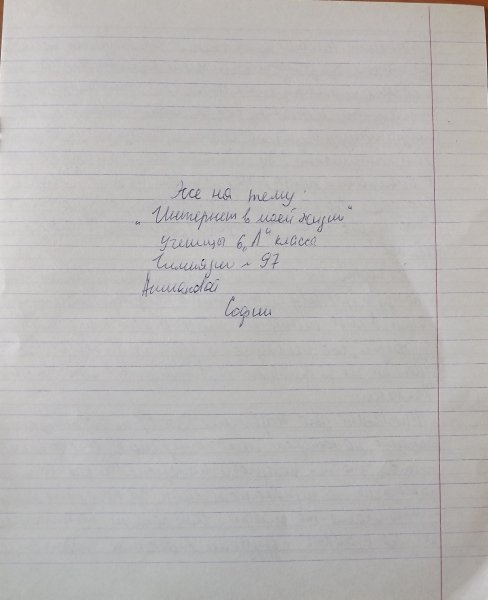 Эссе на тему:
„Интернет в моей жизни"
ученицы 6 „Л" класса
Гимназии № 97
Ашмановой
Софии